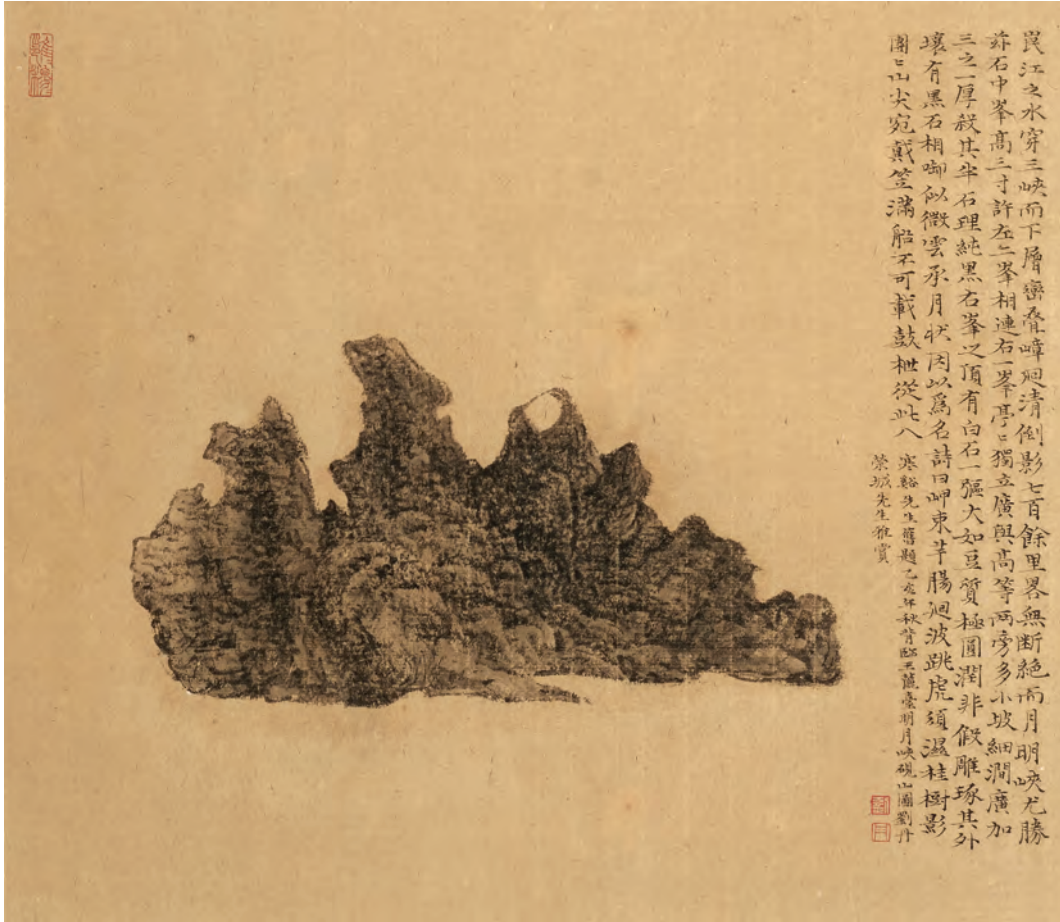 岷江之水穿三峽而下層巒叠嶂迴清倒影七百餘里畧無斷絶而月明峽尤勝
茲石中峯高三寸許左二峯相連右一峯亭〻獨立廣與高等兩旁多小坡細澗廣加
三之一厚殺其半石理純黑右峯之頂有白石一彄大如豆質極圓潤非假雕琢其外
壤有黒石相啣似微雲承月狀因以爲名詩曰岬束羊腸迴波跳虎須濕桂樹影
團〻山尖宛戴笠滿船不可載鼓枻從此入
寒谿先生舊題乙亥年秋背臨王蘊臺明月峽硯山圖劉丹
榮城先生雅賞